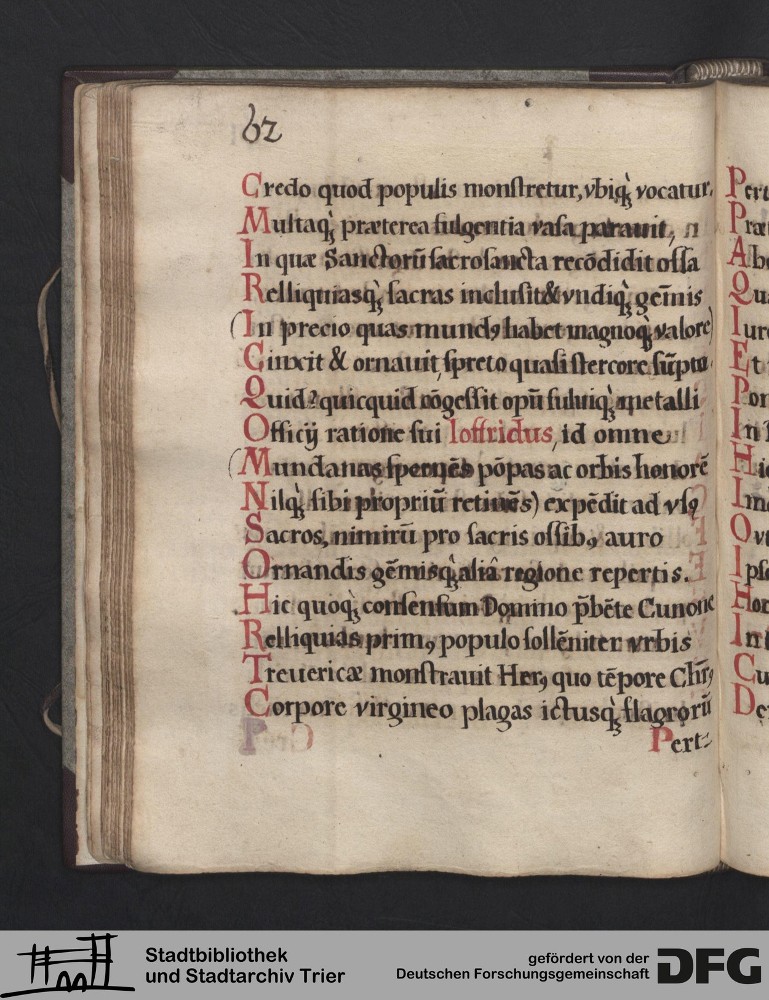 62
Credo quod populis monſtretur, vbiq; vocatur.
Multaq; præterea fulgentia vaſa parauit,
In quæ Sanctorũ ſacroſancta recõdidit oſſa
Relliquiasq; ſacras incluſit & vndiq; gem̃is
(In precio quas mundꝰ habet magnoq; valore)
Cinxit & ornauit, ſpreto quaſi ſtercore ſũptu.
Quid? quicquid cõgeſſit opũ fuluiq; metalli
Officij ratione ſui Ioffridus, id omne
(Mundanas ſpernẽs põpas ac orbis honorẽ
Nilq; ſibi propriũ retinẽs) expẽdit ad vſꝰ
Sacros, nimirũ pro ſacris oſſibꝰ, auro
Ornandis gẽmisq; aliâ regione repertis.
Hic quoq; conſenſum Domino p̃bẽte Cunone
Relliquias primꝰ, populo ſollẽniter vrbis
Treuericæ monſtrauit Herꝰ, quo tẽpore Chr̃ꝰ
Corpore virgineo plagas ictusq; flagrorũ
Pert:
Stadtbibliothek
und Stadtarchiv Trier
gefördert von der
Deutschen Forschungsgemeinschaft
DFG